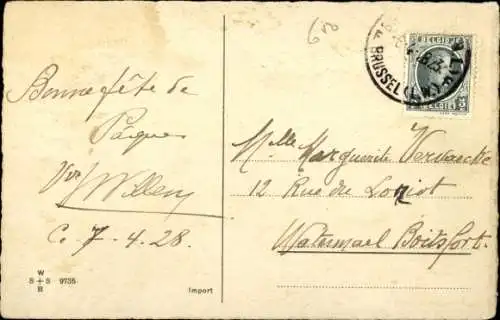 Bonne fête de
Pâques
Willem
C. 7-4-28.
W
S+S 9735
B
Import
6
BRUSSEL
BELGIQUE
5 BELGIË 5
Melle Marguerite Vervaecke
12 Rue du Loriot
Watermael Boitsfort.